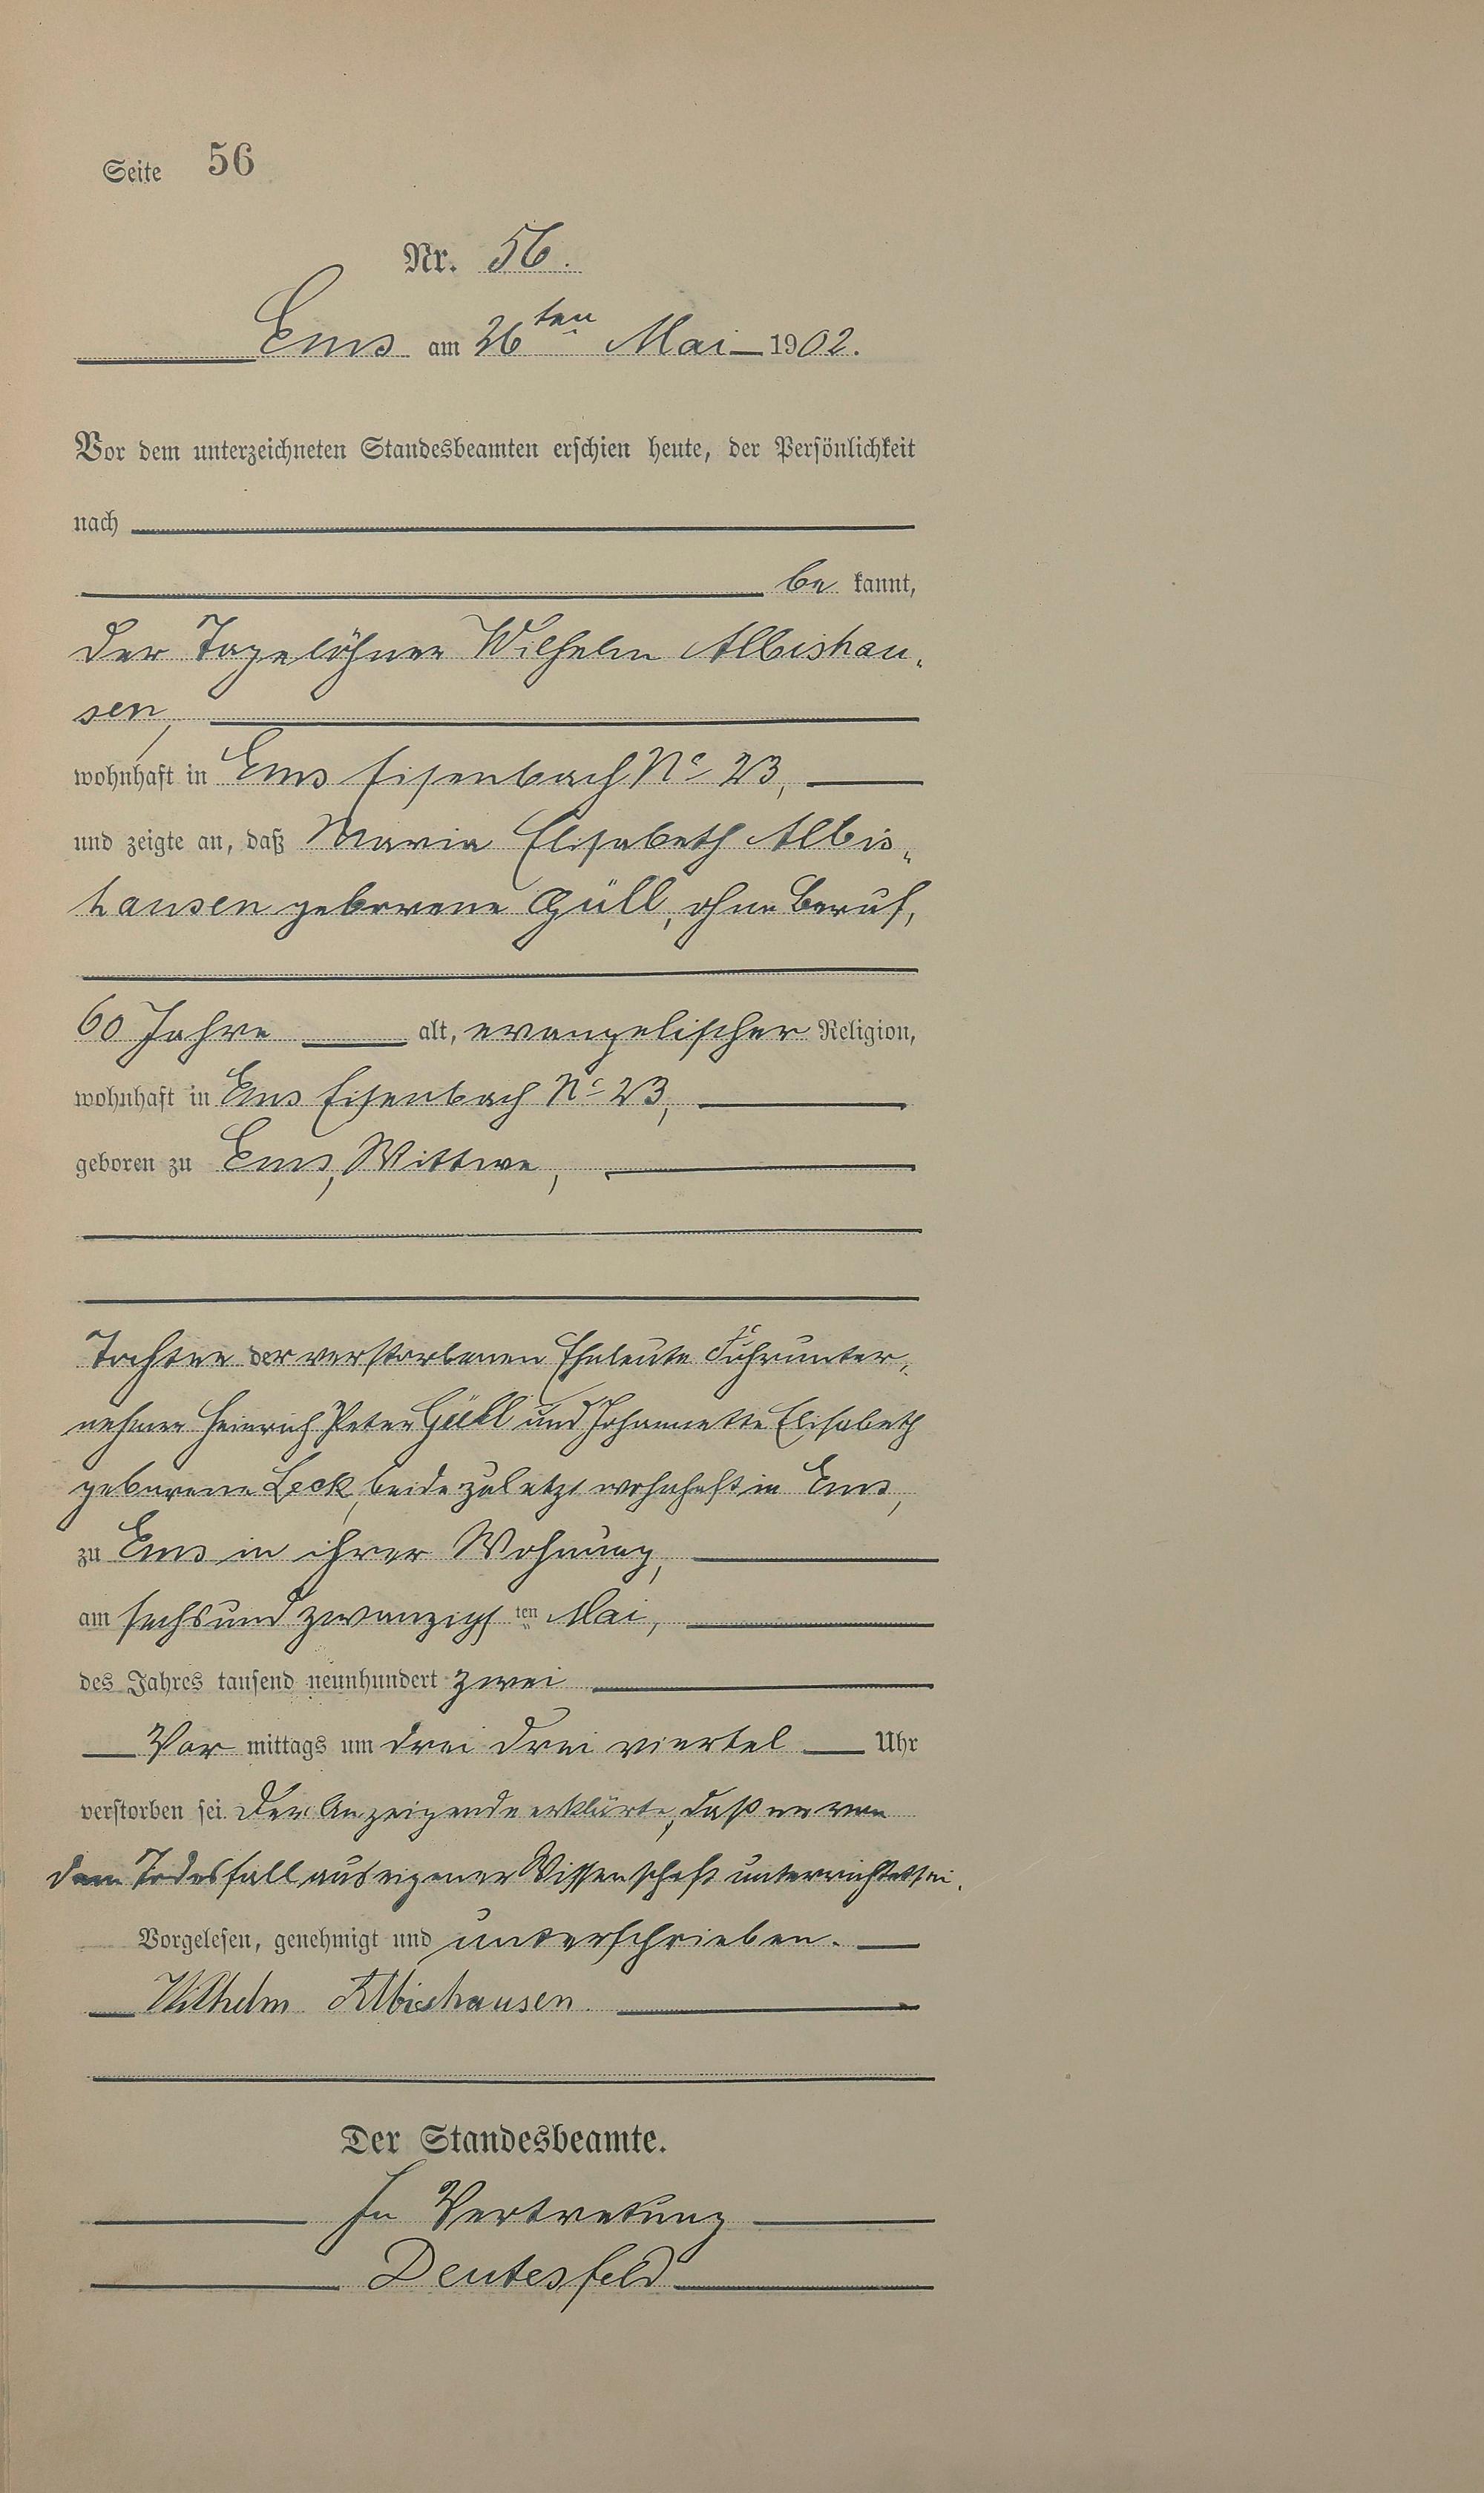 Seite 56
Nr. 56.
Ems am 26ten Mai 1902.
Vor dem unterzeichneten Standesbeamten erschien heute, der Persönlichkeit
nach
be kannt,
der Tagelöhner Wilhelm Albishau-
sen,
wohnhaft in Ems Eisenbach No 23,
und zeigte an, daß Maria Elisabeth Albis-
hausen geborene Güll, ohne Beruf,
60 Jahre alt, evangelischer Religion,
wohnhaft in Ems Eisenbach No 23,
geboren zu Ems, Wittwe,
Tochter der verstorbenen Eheleute Fuhrunter-
nehmer Heinrich Peter Güll und Johannette Elisabeth
geborene Leck, beide zuletzt wohnhaft in Ems,
zu Ems in ihrer Wohnung,
am sechsundzwanzigs ten Mai,
des Jahres tausend neunhundert zwei
Vor mittags um drei drei viertel Uhr
verstorben sei. Der Anzeigende erklärte, daß er von
dem Todesfall aus eigener Wissenschaft unterrichtet sei.
Vorgelesen, genehmigt und unterschrieben.
Wilhelm Albishausen
Der Standesbeamte.
In Vertretung
Deutesfeld